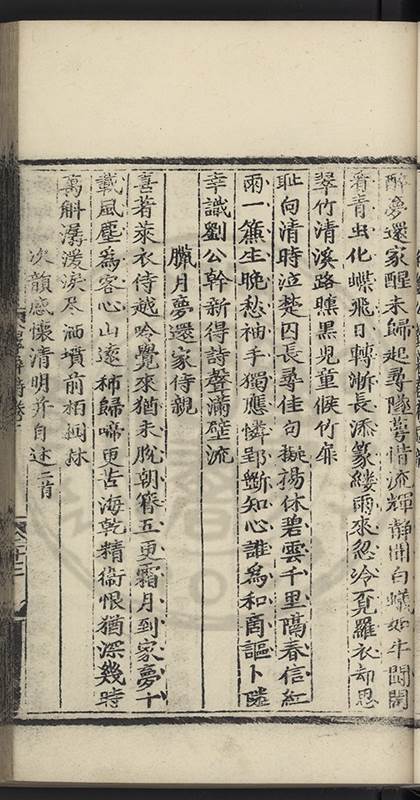 醉夢還家醒未歸起尋墜夢情流輝靜聞白蟻如牛鬪閒
看青虫化蝶飛日轉漸長添篆縷雨來忽冷覔羅衣却思
翠竹清溪路曛黒兒童候竹扉
耻向清時泣楚囚長尋佳句擬揚休碧雲千里隔春信紅
雨一簾生晩愁袖手獨應憐郢斲知心誰爲和商謳卜隣
幸識劉公幹新得詩聲滿壁流
臘月夢還家侍親
喜著萊衣侍越吟覺來猶未脫朝簪五更霜月到家夢十
載風塵爲客心山遠柿歸啼更苦海乾精衞恨猶深幾時
萬斛潺湲淚尽洒墳前栢樹林
次韻感懷清明并自述二首